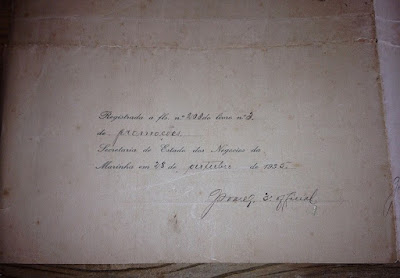 Registrada a fls. n.º 298 do livro n.º 3
de promoções
Secretaria de Estado dos Negocios da
Marinha em 28 de outubro de 1935
3º official,